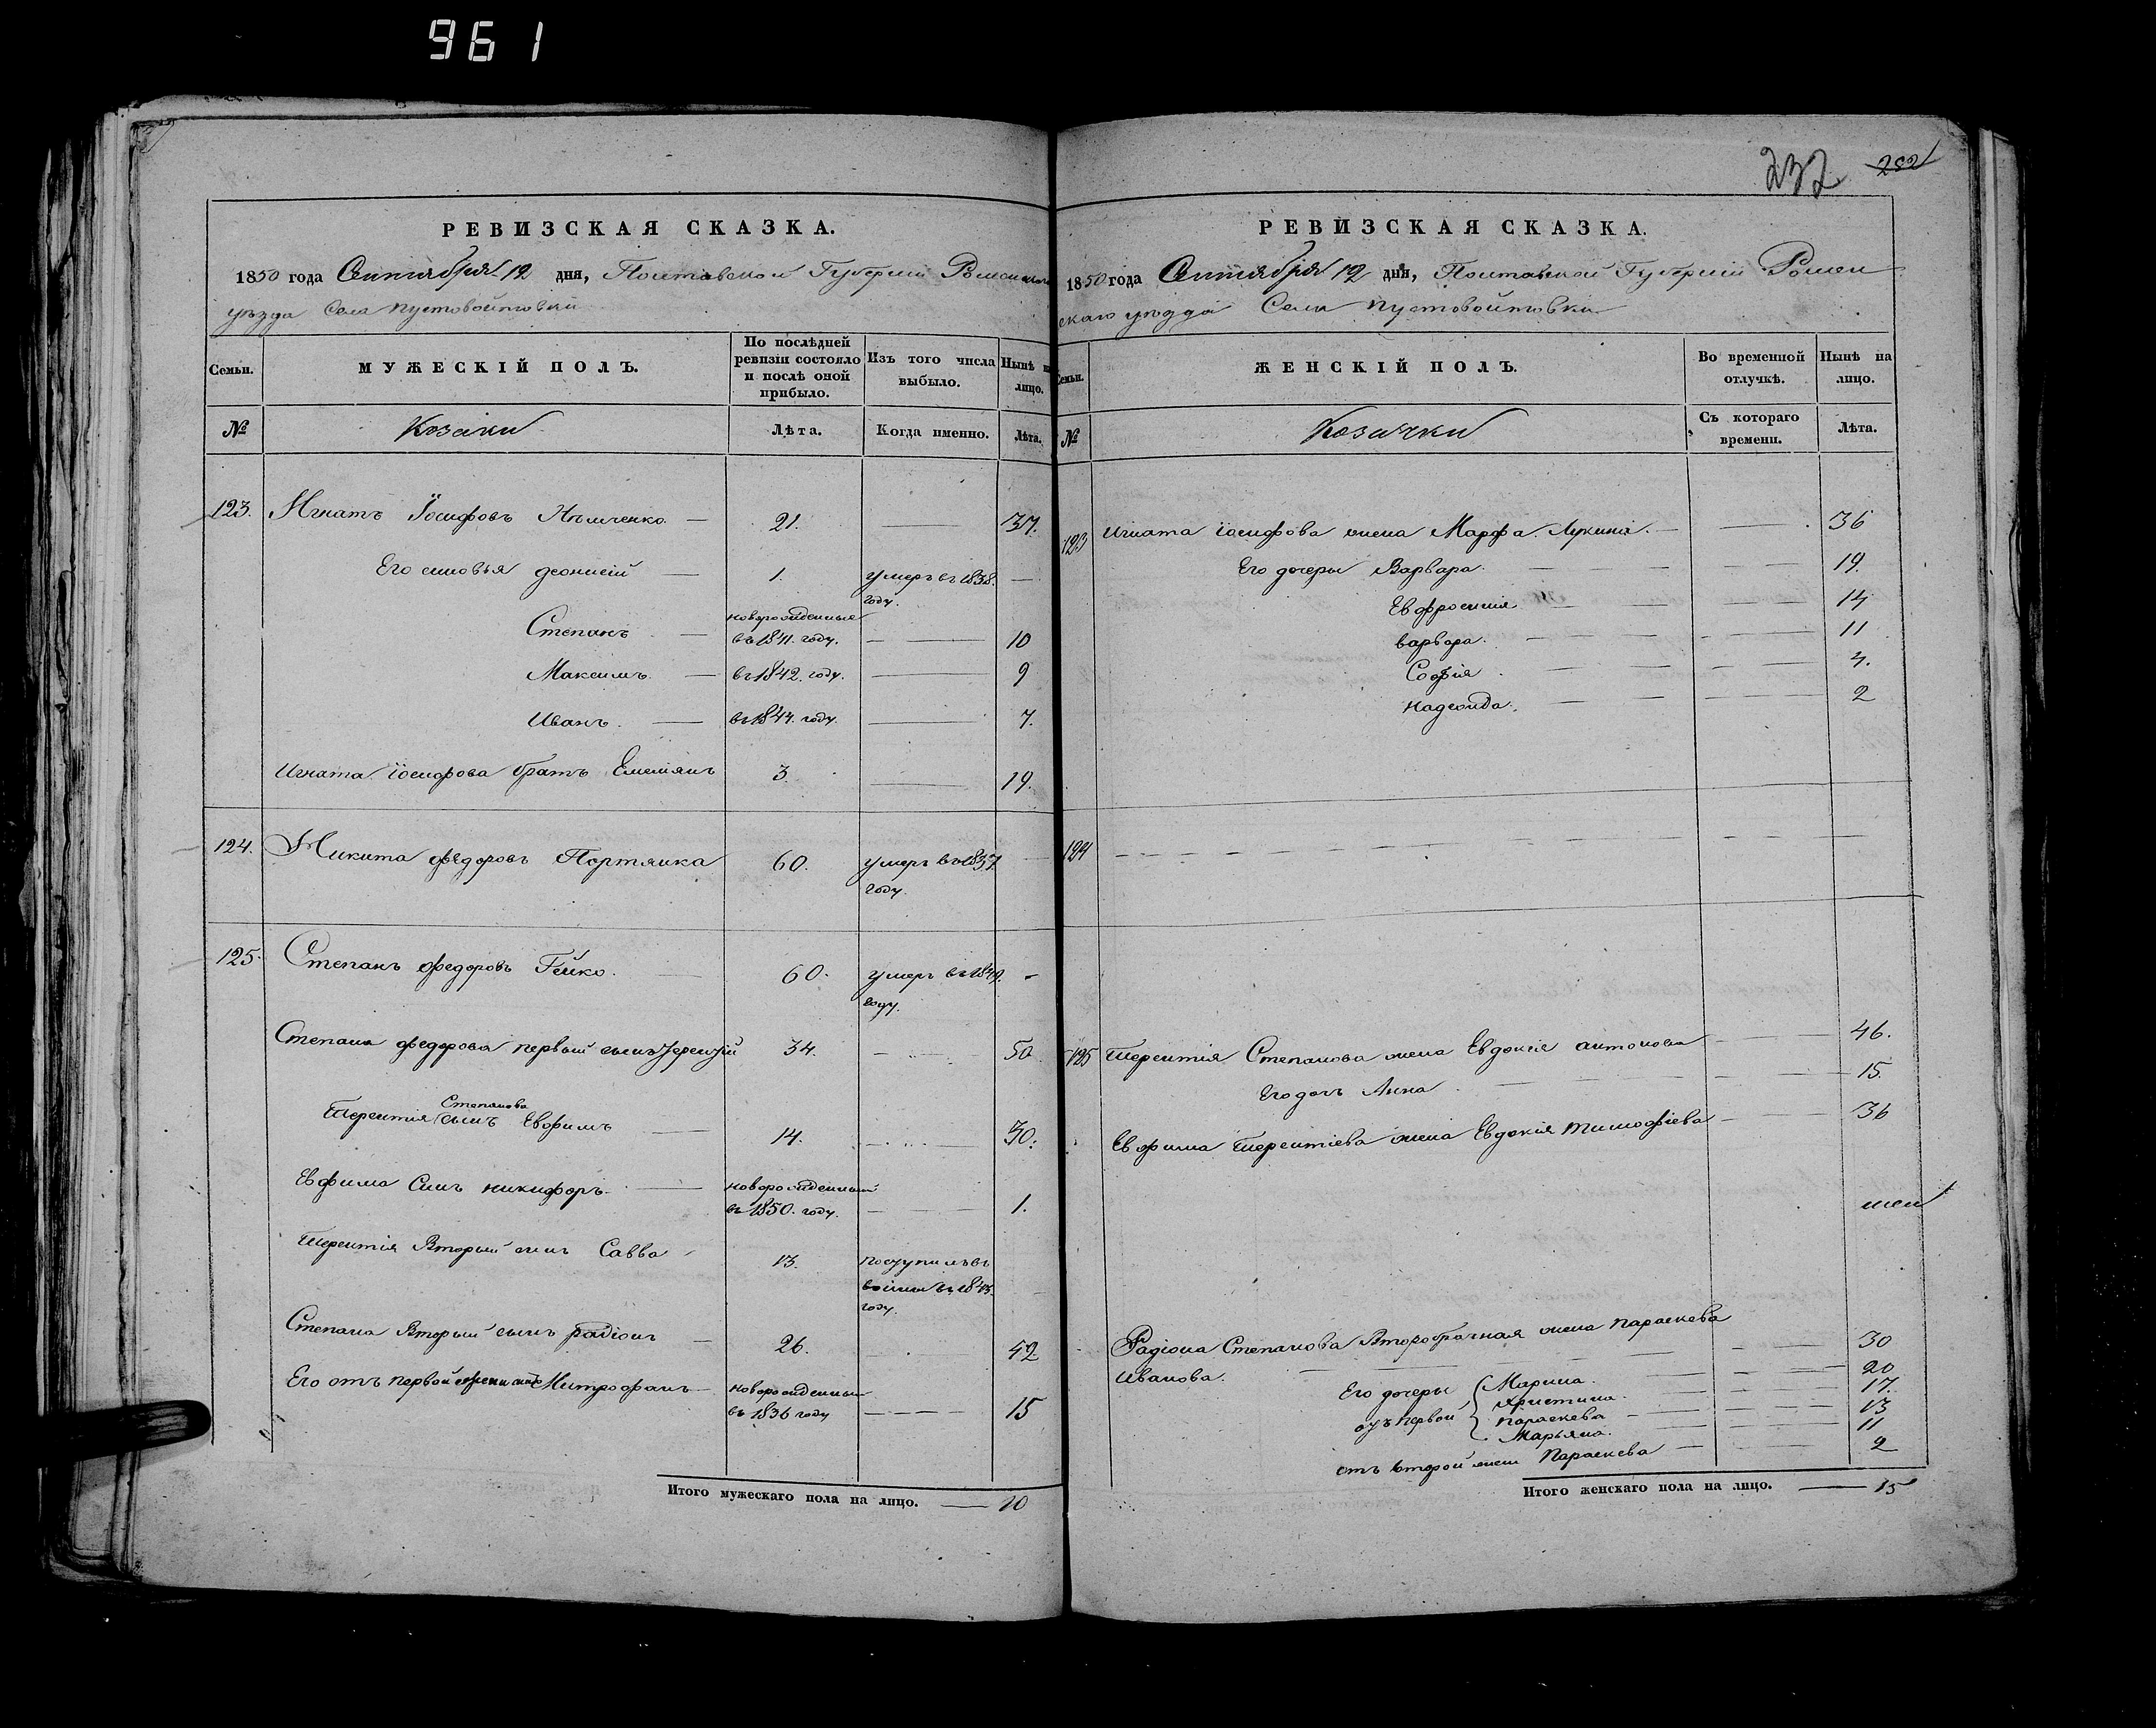 961
232 282
РЕВИЗСКАЯ СКАЗКА.
1850 года Сентября 12 дня, Полтавской Губерніи Роменскаго
уѣзда Села Пустовойтовки
Семьи.
МУЖЕСКІЙ ПОЛЪ.
По послѣдней ревизіи состояло и послѣ оной прибыло.
Изъ того числа выбыло.
Нынѣ на лицо.
№
Козаки
Лѣта.
Когда именно.
Лѣта.
123. Игнатъ Іосифовъ Нѣмченко — 21. — 37.
Его сыновья Деонисій — 1. умеръ въ 1838. году. —
Степанъ — новорожденные въ 1841. году. — 10
Максимъ — въ 1842. году. — 9
Иванъ. — въ 1844. году. — 7.
Игната Іосифова братъ Емельянъ 3. — 19.
124. Никита Федоровъ Портянка 60. умеръ въ 1837 году. —
125. Степанъ Федоровъ Гейко. — 60. умеръ въ 1849. году. —
Степана Федорова первый сынъ Терентій 34. — 50
Терентія Степанова сынъ Евфимъ — 14. — 30.
Евфима Сынъ Никифоръ. — новорожденный въ 1850. году. — 1.
Терентія Вторый сынъ Савва 13. поступилъ въ году.
Степана Вторый сынъ Радіонъ — 26. — 42
Его отъ первой жены сынъ Митрофанъ — новорожденный въ 1836 году — 15
Итого мужескаго пола на лицо. — 10
РЕВИЗСКАЯ СКАЗКА.
1850 года Сентября 12 дня, Полтавской Губерніи Ромен
скаго уѣзда Села Пустовойтовки
Семьи.
ЖЕНСКІЙ ПОЛЪ.
Во временной отлучкѣ.
Нынѣ на лицо.
№
Козачки
Съ котораго времени.
Лѣта.
123 Игната Іосифова жена Марфа Лукина. — 36
Его дочеры Варвара. — 19.
Евфросинія — 14
Варвара. — 11
Софія — 4.
Надежда. — 2
124 —
125 Терентія Степанова жена Евдокія Антонова — 46.
Его дочь Анна — 15.
Евфима Терентіева жена Евдокія Тимофіева — 36
Радіона Степанова Второбрачная жена Параскева 30
Иванова.
Его дочеры Марина. — 20
отъ первой Христина. — 17.
Параскева — 13
Марьяна. — 11
отъ второй жены Параскева — 2
Итого женскаго пола на лицо. — 15